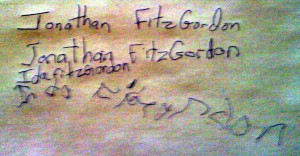 Jonathan FitzGordon
Jonathan FitzGordon
Idafitzgordon